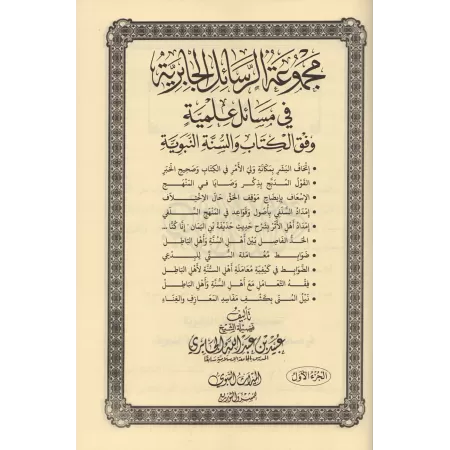 مجموعة الرسائل الجابرية
في مسائل علمية
وفق الكتاب والسنة النبوية
• إتحاف البشر بمكانة ولي الأمر في الكتاب وصحيح الخبر
• القول المدبج بذكر وصايا في المنهج
• الإسعاف بإيضاح موقف الحق حال الاختلاف
• إمداد السلفي بأصول وقواعد في المنهج السلفي
• إمداد أهل الأثر بشرح حديث حذيفة بن اليمان "إنا كنا ...
• الحد الفاصل بين أهل السنة وأهل الباطل
• ضوابط معاملة السني للبدعي
• الضوابط في كيفية معاملة أهل السنة لأهل الباطل
• فقه التعامل مع أهل السنة وأهل الباطل
• نيل المنى بكشف مفاسد المعازف والغناء
تأليف
فضيلة الشيخ
عبيد بن عبد الله الجابري
المدرس بالجامعة الإسلامية سابقا
الجزء الأول
الميراث النبوي
للنشر والتوزيع